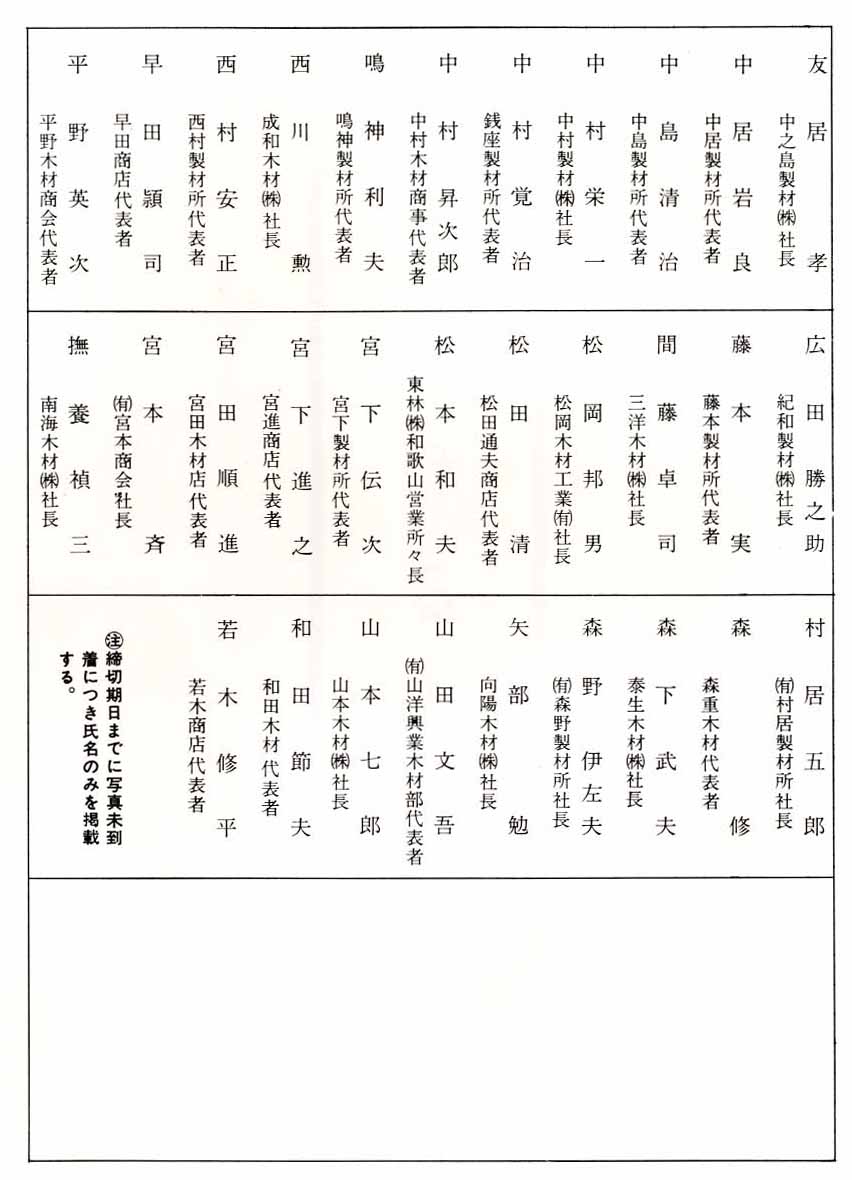 友居孝
中之島製材㈱社長
中居岩良
中居製材所代表者
中島清治
中島製材所代表者
中村栄一
中村製材㈱社長
中村覚治
銭座製材所代表者
中村昇次郎
中村木材商事代表者
鳴神利夫
鳴神製材所代表者
西川勲
成和木材㈱社長
西村安正
西村製材所代表者
早田頴司
早田商店代表者
平野英次
平野木材商会代表者
広田勝之助
紀和製材㈱社長
藤本実
藤本製材所代表者
間藤卓司
三洋木材㈱社長
松岡邦男
松岡木材工業㈲社長
松田清
松田通夫商店代表者
松本和夫
東林㈱和歌山営業所々長
宮下伝次
宮下製材所代表者
宮下進之
宮進商店代表者
宮田順進
宮田木材店代表者
宮本斉
㈲宮本商会社長
撫養禎三
南海木材㈱社長
村居五郎
㈲村居製材所社長
森修
森重木材代表者
森下武夫
泰生木材㈱社長
森野伊左夫
㈲森野製材所社長
矢部勉
向陽木材㈱社長
山田文吾
㈲山洋興業木材部代表者
山本七郎
山本木材㈱社長
和田節夫
和田木材代表者
若木修平
若木商店代表者
㊟締切期日までに写真未到
着につき氏名のみを掲載
する。